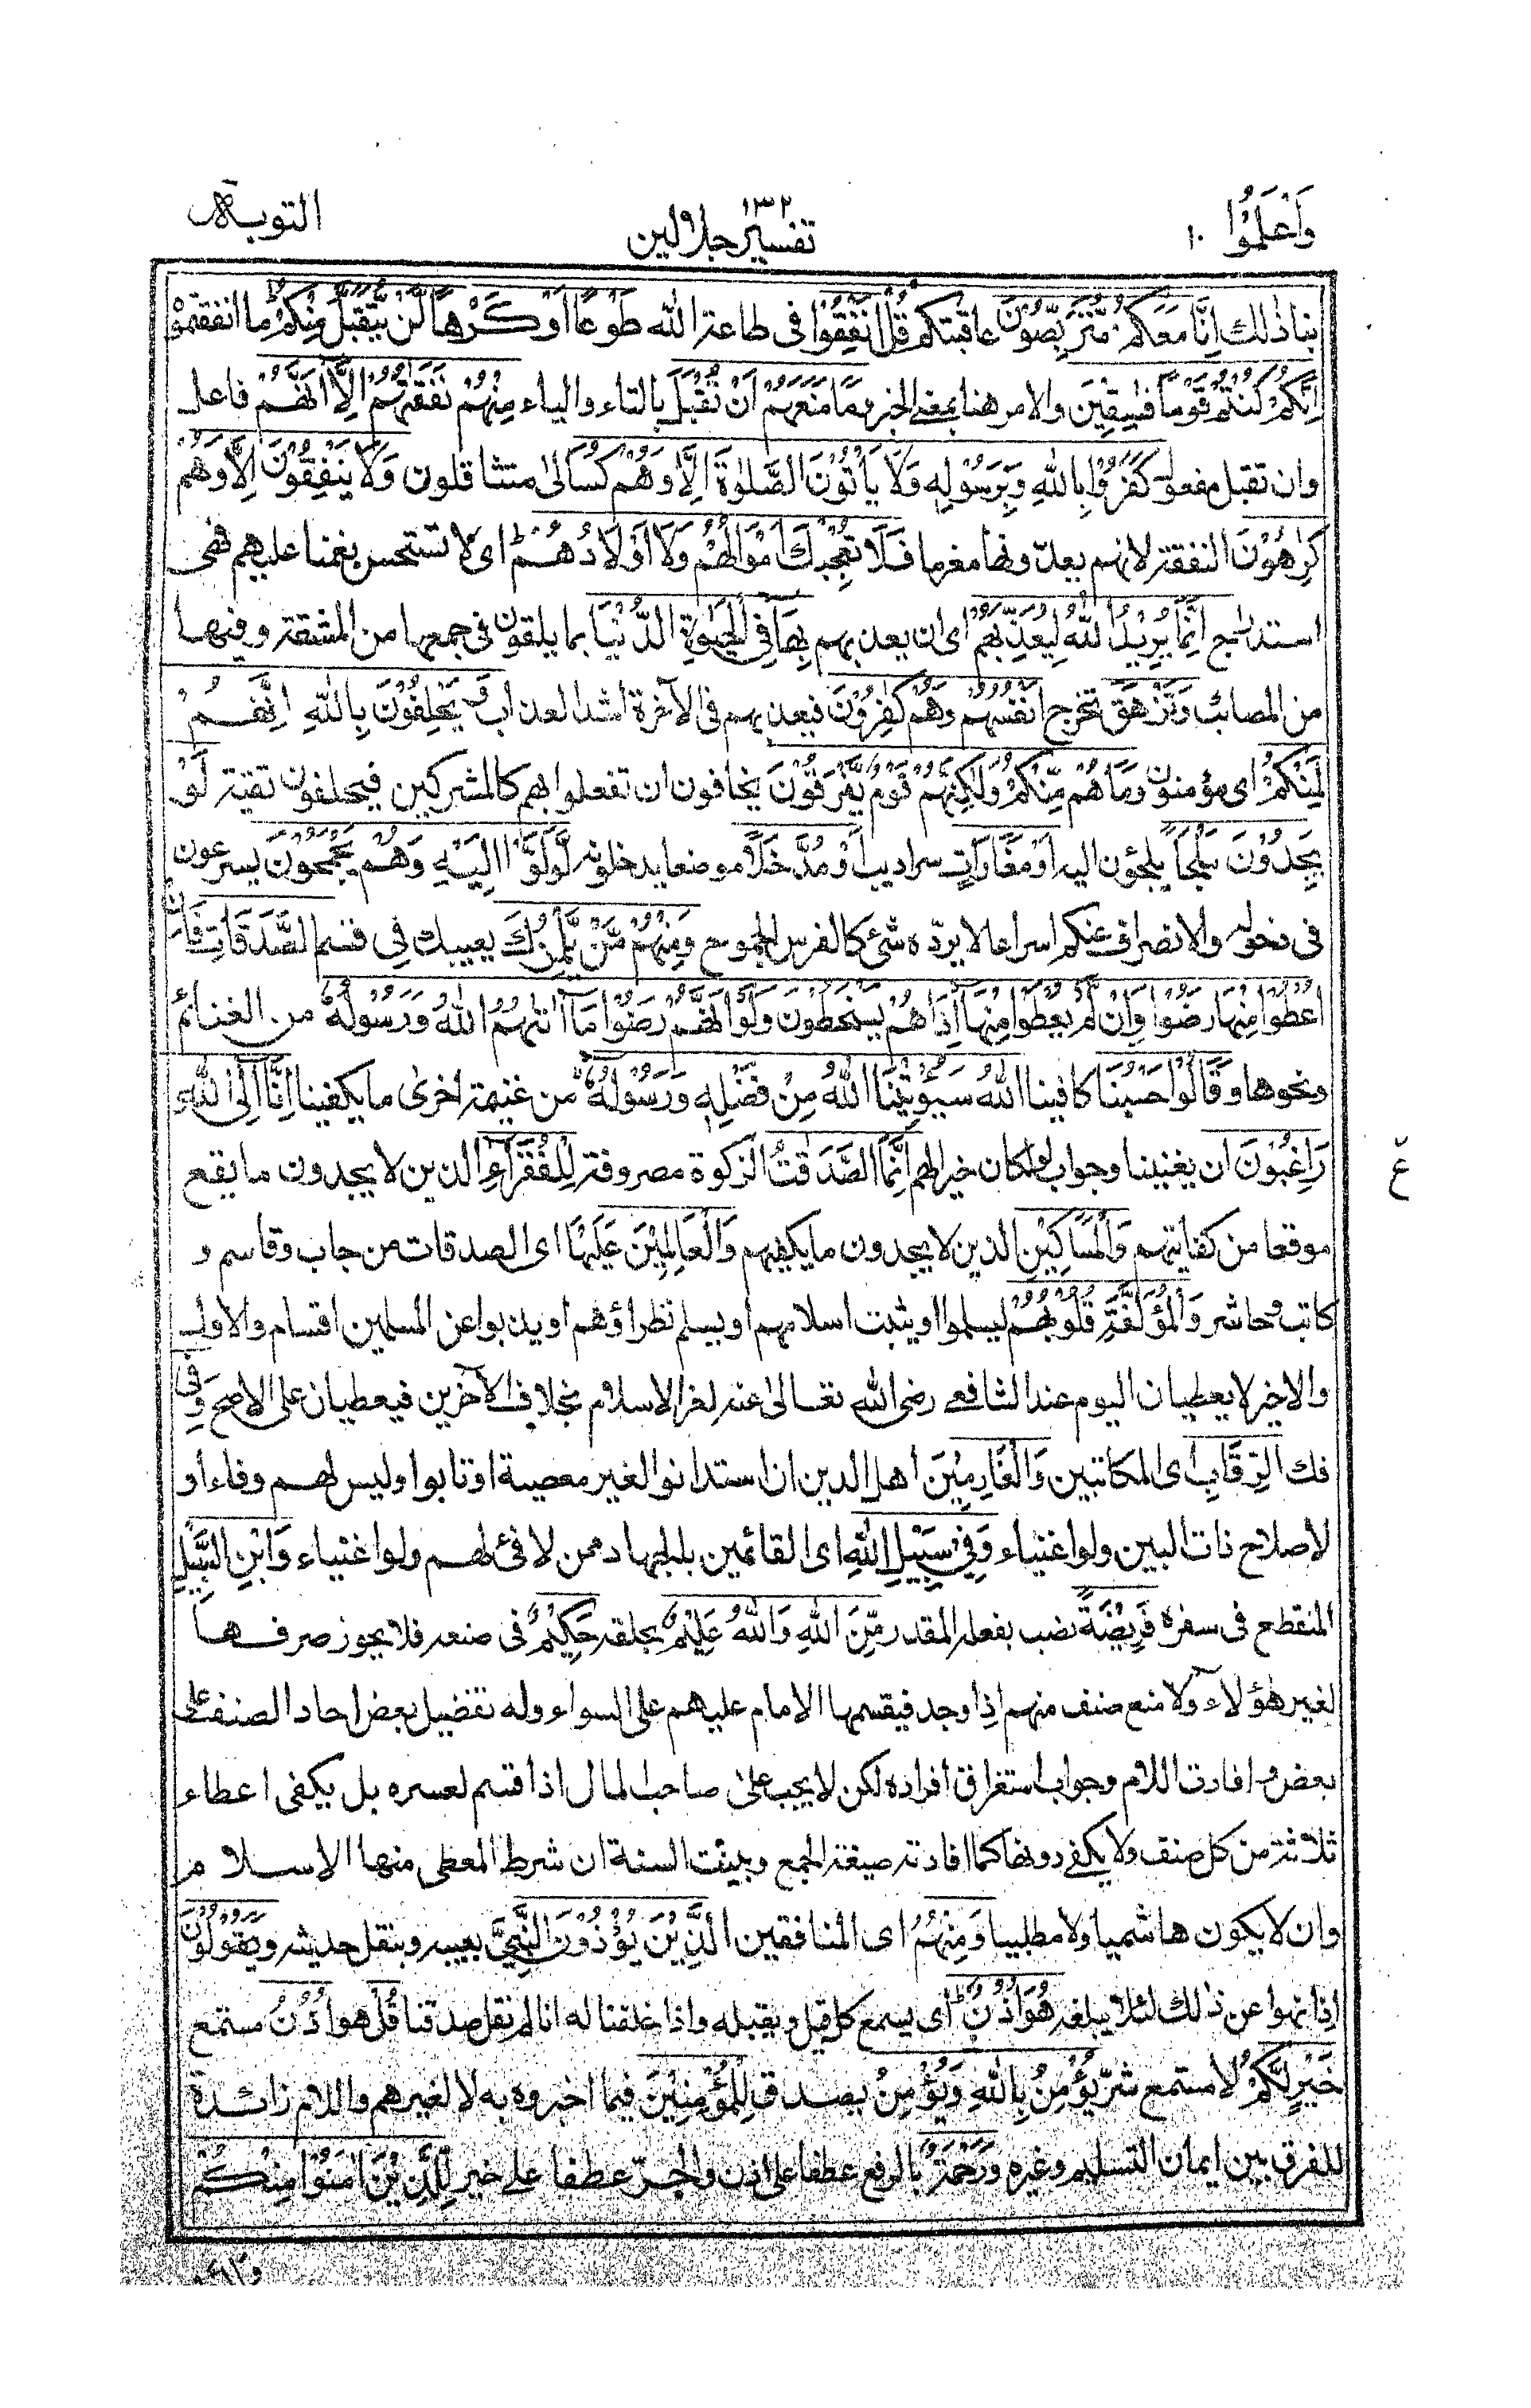 واعلموا ١٠
١٣٢
تفسير جلالين
التوبة ٩
بنا ذٰلك اِنَّا مَعَكُمْ مُّتَرَبِّصُوْنَ عاقبتكم قُلْ اَنْفِقُوْا فى طاعة الله طَوْعًا اَوْ كَرْهًا لَّنْ يُّتَقَبَّلَ مِنْكُمْ ما انفقتموه
اِنَّكُمْ كُنْتُمْ قَوْمًا فٰسِقِيْنَ والامر هنا بمعنى الخبر وَمَا مَنَعَهُمْ اَنْ تُقْبَلَ بالتاء والياء مِنْهُمْ نَفَقٰتُهُمْ اِلَّا اَنَّهُمْ فاعل
وان تقبل مفعول كَفَرُوْا بِاللّٰهِ وَبِرَسُوْلِهٖ وَلَا يَأْتُوْنَ الصَّلٰوةَ اِلَّا وَهُمْ كُسَالٰى متثاقلون وَلَا يُنْفِقُوْنَ اِلَّا وَهُمْ
كٰرِهُوْنَ النفقة لانهم يعدّونها مغرما فَلَا تُعْجِبْكَ اَمْوَالُهُمْ وَلَا اَوْلَادُهُمْ اى لا تستحسن نعمنا عليهم فهى
استدراج اِنَّمَا يُرِيْدُ اللّٰهُ لِيُعَذِّبَهُمْ اى ان يعذبهم بِهَا فِى الْحَيٰوةِ الدُّنْيَا بما يلقون فى جمعها من المشقة وفيها
من المصائب وَتَزْهَقَ تخرج اَنْفُسُهُمْ وَهُمْ كٰفِرُوْنَ فيعذبهم فى الآخرة اشد العذاب وَيَحْلِفُوْنَ بِاللّٰهِ اِنَّهُمْ
لَمِنْكُمْ اى مؤمنون وَمَا هُمْ مِّنْكُمْ وَلٰكِنَّهُمْ قَوْمٌ يَّفْرَقُوْنَ يخافون ان تفعلوا بهم كالمشركين فيحلفون تقية لَوْ
يَجِدُوْنَ مَلْجَأً يلجئون اليه اَوْ مَغَارَاتٍ سراديب اَوْ مُدَّخَلًا موضعا يدخلونه لَّوَلَّوْا اِلَيْهِ وَهُمْ يَجْمَحُوْنَ يسرعون
فى دخوله والانصراف عنكم اسراعا لا يردّه شئ كالفرس الجموح وَمِنْهُمْ مَّنْ يَّلْمِزُكَ يعيبك فِى قسم الصَّدَقَاتِ فَاِنْ
اُعْطُوْا مِنْهَا رَضُوْا وَاِنْ لَّمْ يُعْطَوْا مِنْهَا اِذَا هُمْ يَسْخَطُوْنَ وَلَوْ اَنَّهُمْ رَضُوْا مَا اٰتٰهُمُ اللّٰهُ وَرَسُوْلُهٗ من الغنائم
ونحوها وَقَالُوْا حَسْبُنَا كافينا اللّٰهُ سَيُؤْتِيْنَا اللّٰهُ مِنْ فَضْلِهٖ وَرَسُوْلُهٗ من غنيمة اخرى ما يكفينا اِنَّا اِلَى اللّٰهِ
رَاغِبُوْنَ ان يغنينا وجواب لو لكان خيرا لهم اِنَّمَا الصَّدَقٰتُ الزكوة مصروفة لِلْفُقَرَاءِ الذين لا يجدون ما يقع
ع
موقعا من كفايتهم وَالْمَسَاكِيْنِ الذين لا يجدون ما يكفيهم وَالْعَامِلِيْنَ عَلَيْهَا اى الصدقات من جاب وقاسم و
كاتب وحاشر وَالْمُؤَلَّفَةِ قُلُوْبُهُمْ ليسلموا او يثبت اسلامهم او يسلم نظراؤهم او يذبوا عن المسلمين اقسام والاول
والاخير لا يعطيان اليوم عند الشافعى رضى الله تعالى عنه لعز الاسلام بخلاف الآخرين فيعطيان على الاصح وَفِى
فك الرِّقَابِ اى المكاتبين وَالْغَارِمِيْنَ اهل الدين ان استدانوا لغير معصية او تابوا وليس لهم وفاء او
لاصلاح ذات البين ولو اغنياء وَفِىْ سَبِيْلِ اللّٰهِ اى القائمين بالجهاد ممن لا فئ لهم ولو اغنياء وَابْنِ السَّبِيْلِ
المنقطع فى سفره فَرِيْضَةً نصب بفعله المقدر مِّنَ اللّٰهِ وَاللّٰهُ عَلِيْمٌ بخلقه حَكِيْمٌ فى صنعه فلا يجوز صرفها
لغير هؤلاء ولا منع صنف منهم اذا وجد فيقسمها الامام عليهم على السواء وله تفضيل بعض احاد الصنف على
بعض و افادت اللام وجوب استغراق افراده لكن لا يجب على صاحب المال اذا قسم لعسره بل يكفى اعطاء
ثلاثة من كل صنف ولا يكفى دونها كما افادته صيغة الجمع وبينت السنة ان شرط المعطى منها الاسلام
وان لا يكون هاشميا ولا مطلبيا وَمِنْهُمُ اى المنافقين الَّذِيْنَ يُؤْذُوْنَ النَّبِىَّ بعيبه وبنقل حديثه وَيَقُوْلُوْنَ
اذا نهوا عن ذٰلك لئلا يبلغه هُوَ اُذُنٌ اى يسمع كل قيل ويقبله واذا حلفنا له انا لم نقل صدقنا قُلْ هو اُذُنُ مستمع
خَيْرٍ لَّكُمْ لا مستمع شر يُؤْمِنُ بِاللّٰهِ وَيُؤْمِنُ يصدق لِلْمُؤْمِنِيْنَ فيما اخبروه به لا لغيرهم واللام زائدة
للفرق بين ايمان التسليم وغيره وَرَحْمَةٌ بالرفع عطفا على اذن والجرّ عطفا على خير لِّلَّذِيْنَ اٰمَنُوْا مِنْكُمْ